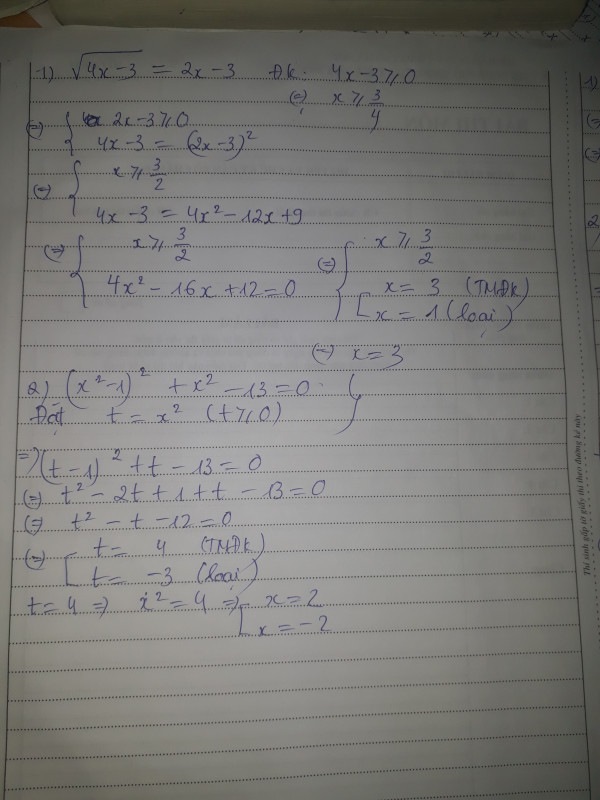 1) √(4x-3) = 2x-3   ĐK: 4x-3 ⩾ 0
(=) x ⩾ 3/4
(=) { 2x-3 ⩾ 0
4x-3 = (2x-3)²
(=) { x ⩾ 3/2
4x-3 = 4x²-12x+9
(=) { x ⩾ 3/2
4x²-16x+12=0
(=) { x ⩾ 3/2
[ x = 3 (TMĐK)
x = 1 (loại)
(=) x = 3
2) (x²-1)² + x² -13 = 0
Đặt t = x² (t ⩾ 0)
=) (t-1)² + t - 13 = 0
(=) t² - 2t + 1 + t - 13 = 0
(=) t² - t - 12 = 0
(=) [ t = 4 (TMĐK)
t = -3 (loại)
t = 4 => x² = 4 => [ x = 2
x = -2
Thí sinh gấp tờ giấy thi theo đường kẻ này
1)
(=)
(=)
2